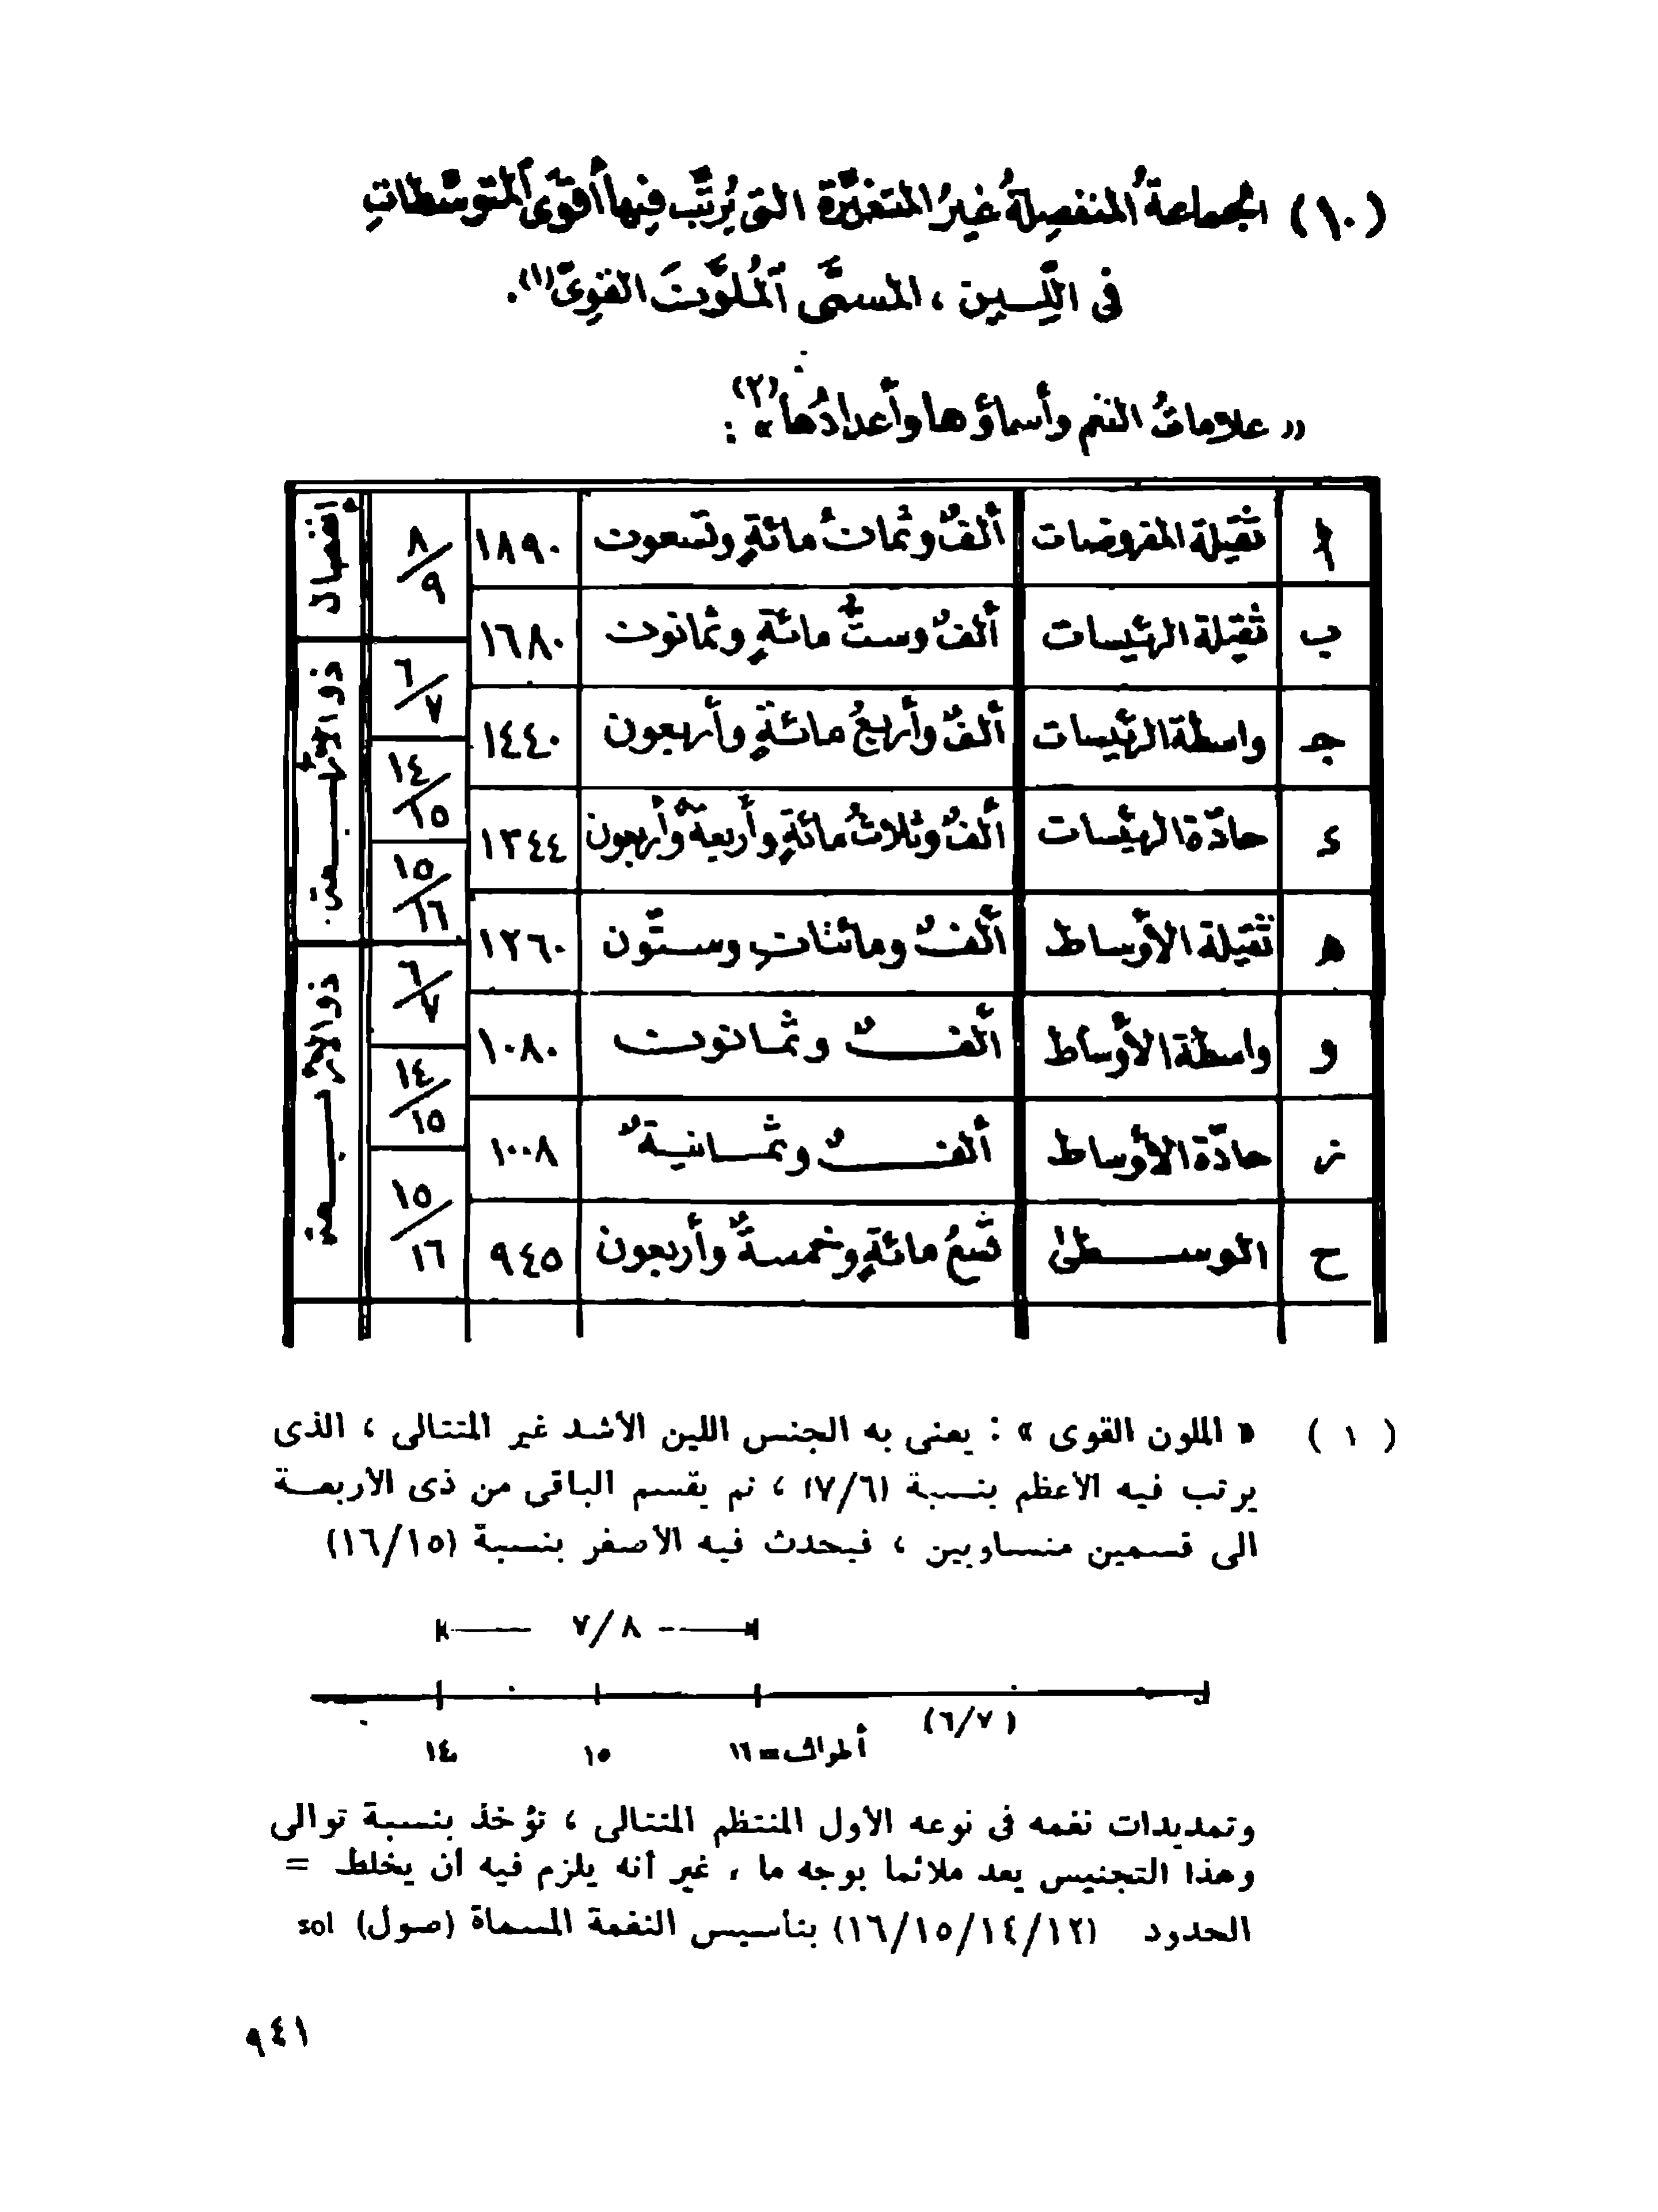 (١٠) الجماعةُ المنفصِلةُ غيرُ المتغيِّرة التى يُرتَّب فيها أقوَى المتوسِّطاتِ
فى اللِّــين ، المسمَّى المُلوَّنَ القوِىّ(١).
« علاماتُ النغم وأسماؤها وأعدادُها(٢)» :
ا ثقيلة المفروضات ألفٌ وثمانُ مائةٍ وتسعون ١٨٩٠ ٨/٩ انفصال
ب ثقيلة الرئيسات ألفٌ وستُّ مائةٍ وثمانون ١٦٨٠ ٦/٧ ذو الأربعة
جـ واسطة الرئيسات ألفٌ وأربعُ مائةٍ وأربعون ١٤٤٠ ١٤/١٥
ء حادّة الرئيسات ألفٌ وثلاثُ مائةٍ وأربعةٌ وأربعون ١٣٤٤ ١٥/١٦
ه ثقيلة الأوساط ألفٌ ومائتانِ وستّون ١٢٦٠ ٦/٧ ذو الأربعة
و واسطة الأوساط ألفٌ وثمانون ١٠٨٠ ١٤/١٥
ز حادّة الأوساط ألفٌ وثمانيةٌ ١٠٠٨ ١٥/١٦
ح الوسطىٰ تسعُ مائةٍ وخمسةٌ وأربعون ٩٤٥
(١) « الملون القوى » : يعنى به الجنس اللين الأشد غير المتتالى ، الذى
يرتب فيه الأعظم بنسبة (٧/٦) ، ثم يقسم الباقى من ذى الأربعـة
الى قسمين متساويين ، فيحدث فيه الأصغر بنسبة (١٦/١٥)
٧/٨
(٦/٧)
أطراف= ١٦ ١٥ ١٤
وتمديدات نغمه فى نوعه الأول المنتظم المتتالى ، تؤخذ بنسبة توالى
وهذا التجنيس يعد ملائما بوجه ما ، غير أنه يلزم فيه أن يخلط =
الحدود (١٦/١٥/١٤/١٢) بتأسيس النغمة المسماة (صول) sol
٩٤١